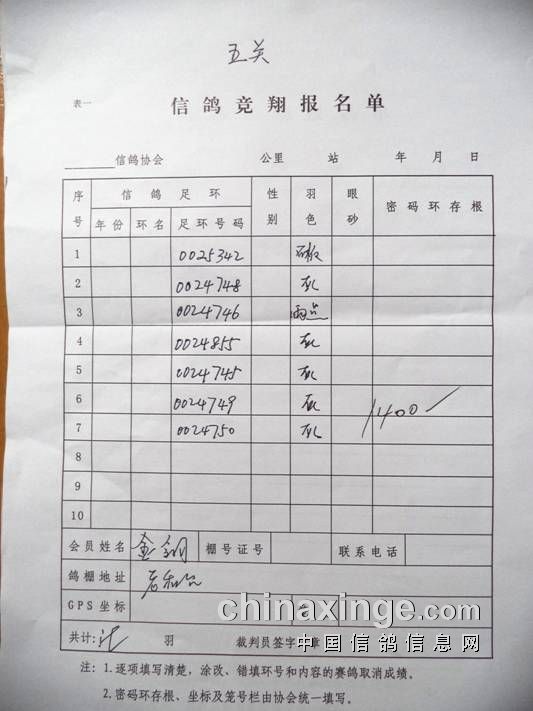 五关
表一
信鸽竞翔报名单
信鸽协会 公里 站 年 月 日
序号 信鸽足环 性别 羽色 眼砂 密码环存根
年份 环名 足环号码
1 0025342
2 0024748 灰
3 0024746 雨点
4 0024855 灰
5 0024745 灰
6 0024749 灰 1400
7 0024750 灰
8
9
10
会员姓名 金钢 棚号证号 联系电话
鸽棚地址
GPS坐标
共计: 羽 裁判员签字 章
注: 1.逐项填写清楚,涂改、错填环号和内容的赛鸽取消成绩。
2.密码环存根、坐标及笼号栏由协会统一填写。
chinaxinge.com
中国信鸽信息网